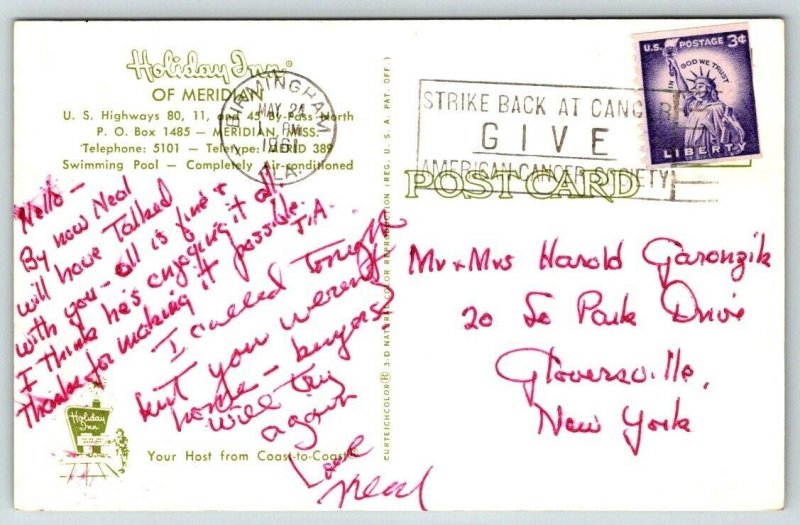 Holiday Inn®
OF MERIDIAN
U. S. Highways 80, 11, and 45 By-Pass North
P. O. Box 1485 — MERIDIAN, MISS.
Telephone: 5101 — Teletype: MERID 389
Swimming Pool — Completely Air-conditioned
BIRMINGHAM
MAY 24
PM
1961
ALA.
STRIKE BACK AT CANCER
GIVE
AMERICAN CANCER SOCIETY
U.S. POSTAGE 3¢
IN GOD WE TRUST
LIBERTY
POST CARD
Hello—
By now Neal
will have Talked
with you—all is fine &
I think he's enjoying it all.
Thanks for making it possible.
J.A.
I called tonight
but you weren't
home —
will try
again
Love
Neal
Mr + Mrs Harold Garonzik
20 Le Park Drive
Gloversville,
New York
CURTEICHCOLOR® 3-D NATURAL COLOR REPRODUCTION (REG. U.S.A. PAT. OFF.)
Holiday
Inn
Your Host from Coast-to-Coast®